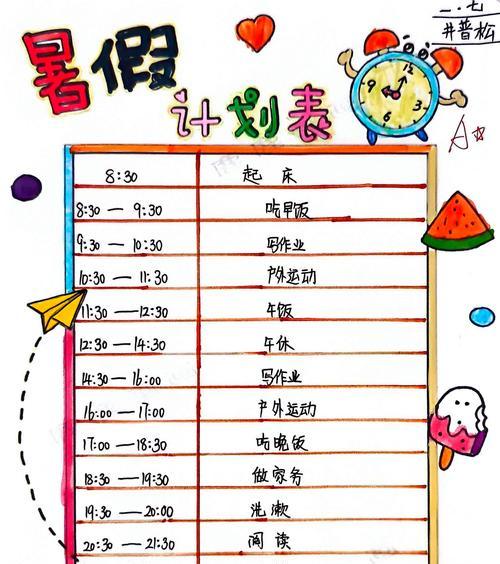 二.七
井普松
暑假
计划表
A☆
12
9
3
6
8:30 起床
8:30 — 9:30 吃早饭
9:30 — 10:30 写作业
10:30 — 11:30 户外运动
11:30 — 12:30 午饭
12:30 — 14:30 午休
14:30 — 16:00 写作业
16:00 — 17:00 户外运动
17:00 — 18:30 吃晚饭
18:30 — 19:30 做家务
19:30 — 20:00 洗漱
20:30 — 21:30 阅读